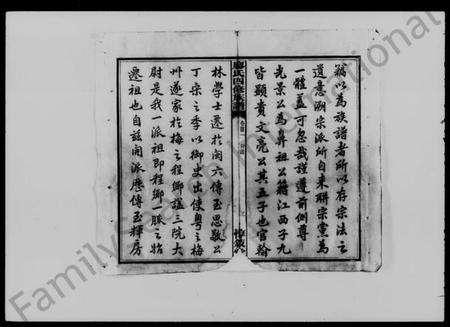 竊以為族譜者所以存宗法之
遺意溯宗派所自來聯宗黨為
一體蓋可忽哉謹遵前側尊
光景公為鼻祖公籍江西子九
皆顯貴文亮公其五子也官翰
廖氏四修族譜
卷首
惇敘
林學士遷於閩六傳至思敬公
丁宋之季以御史出使粵之梅
州遂家於梅之程鄉謚三院大
尉是我一派祖即程鄉一脈之始
遷祖也自茲開派歷傳至輝房
FamilySearch International